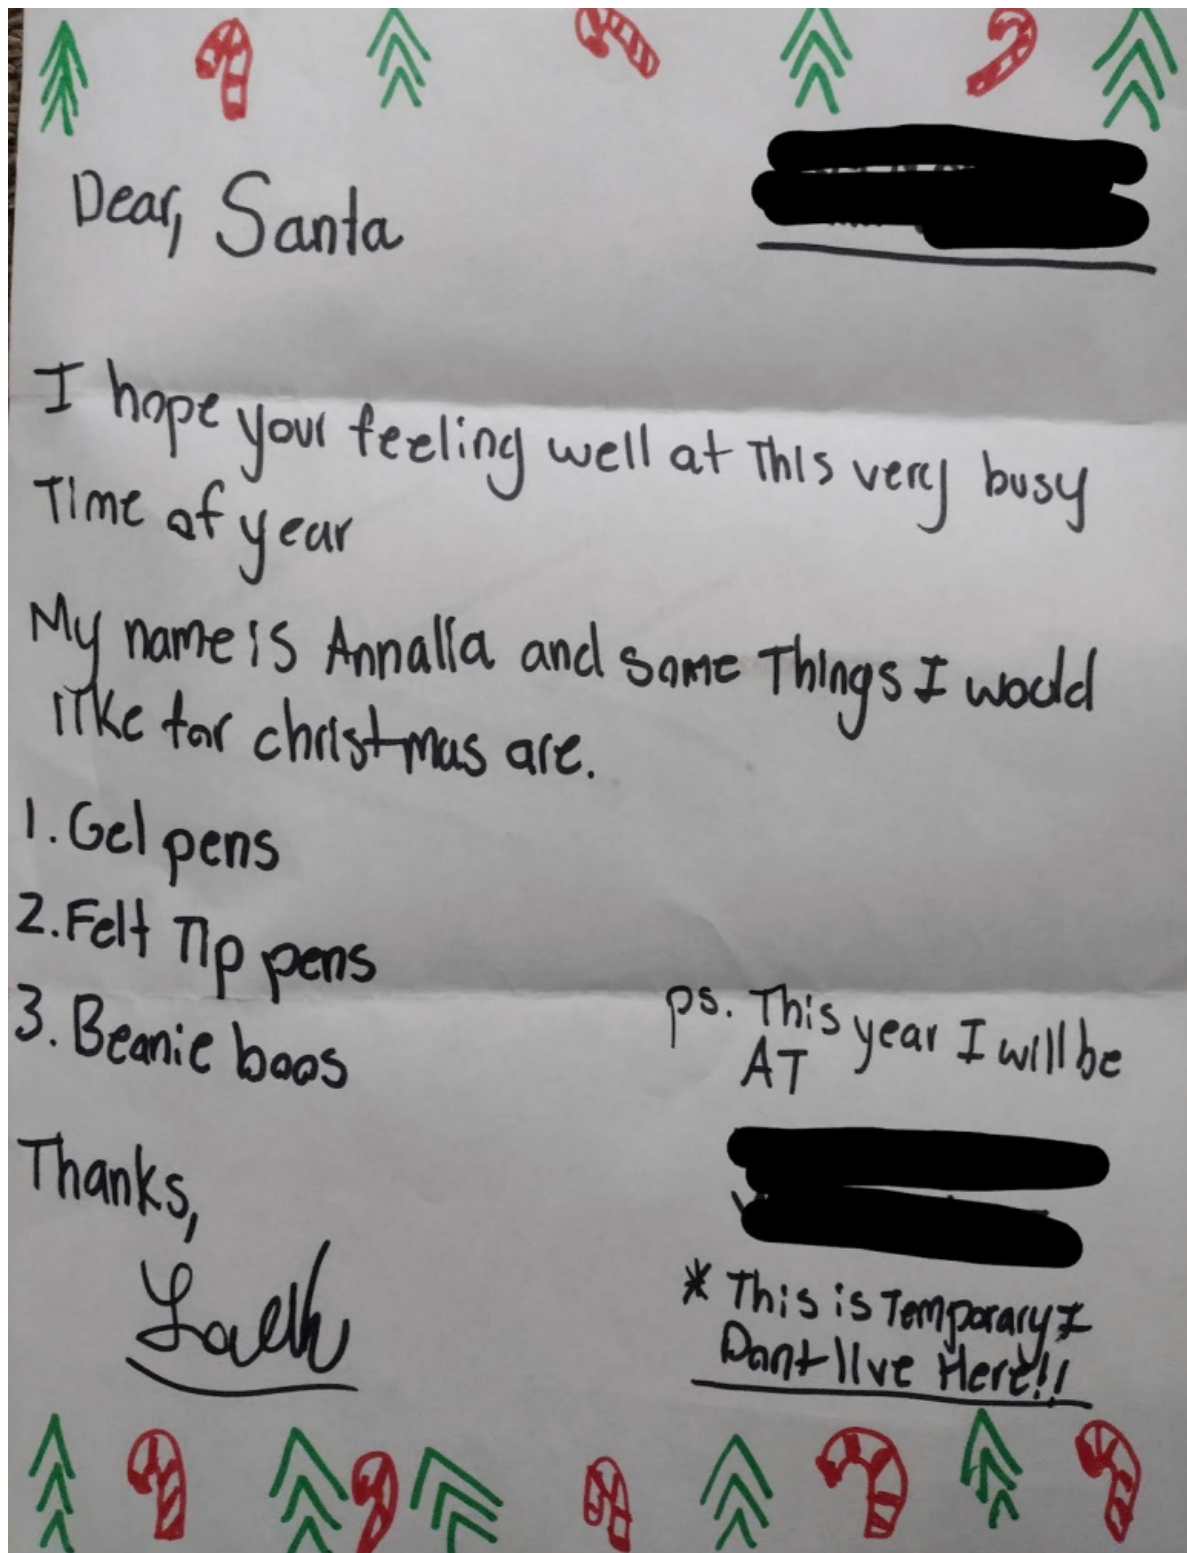 Dear, Santa
I hope your feeling well at This very busy
Time of year
My name is Annalia and some Things I would
like for christmas are.
1. Gel pens
2. Felt Tip pens
3. Beanie boos
ps. This year I will be
AT
Thanks,
* This is Temporary I
Dont live Here!!